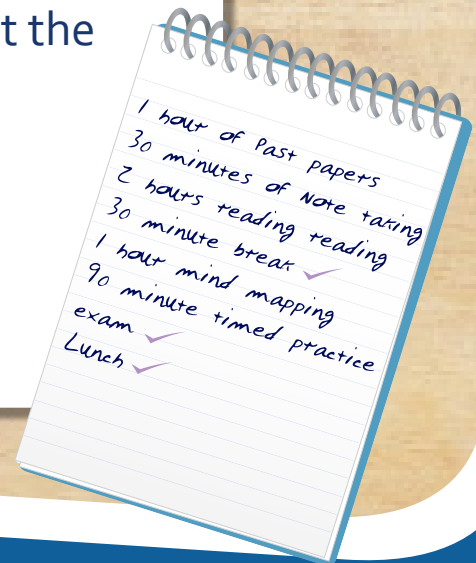 t the
1 hour of Past papers
30 minutes of Note taking
2 hours reading reading
30 minute break ✓
1 hour mind mapping
90 minute timed practice
exam ✓
Lunch ✓